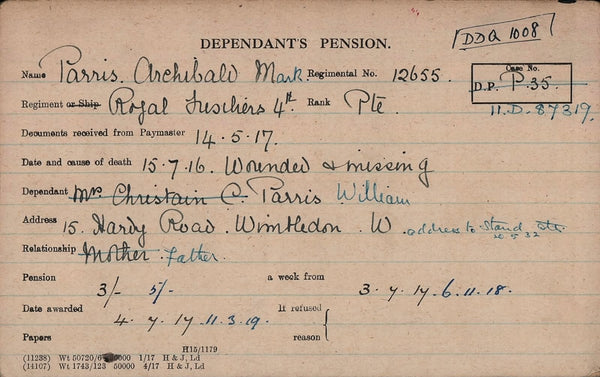 DEPENDANT'S PENSION.
DDA 1008
Name Parris. Archibald Mark. Regimental No. 12655.
Case No.
D.P. P.35.
Regiment or Ship Royal Fusiliers 4th. Rank Pte.
11.D.87319.
Documents received from Paymaster 14.5.17.
Date and cause of death 15.7.16. Wounded & missing
Dependant Mrs Christain C. Parris William
Address 15. Hardy Road. Wimbledon. W. address to stand
20.5.32
Relationship Mother. Father.
Pension 3/- 5/- a week from 3.7.17. 6.11.18.
Date awarded 4.7.17 11.3.19. If refused
Papers reason
H15/1179
(11238) Wt 50720/ 1/17 H & J, Ld
(14107) Wt 1743/123 50000 4/17 H & J, Ld